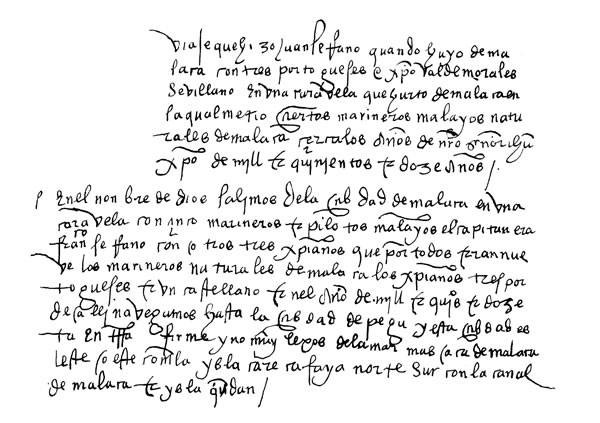 viaje que hizo Juan serano quando huyo de ma
laca con tres portogueses e xpo valdemorales
sevillano en una caravela que hurto de malaca en
la qual metio ciertos marineros malayos natu
rales de malaca cercalos años de nro sñor ihu
xpo de mjll & qujnientos & doze años /.
En el nonbre de dios salimos de la cibdad de malaca en una
caravela con cinco marineros & pilotos malayos el capitan era
franco serano con otros tres xpianos que por todos eran nue
ve los marineros naturales de malaca los xpianos tres por
togueses & un castellano & en el año de mjll & qujos & doze
de navegamos hasta la cibdad de pegu y esta cibdad es
ta en trra firme y no muy lexos de la mar mas cara de malaca
leste oeste con ella y
de malaca &